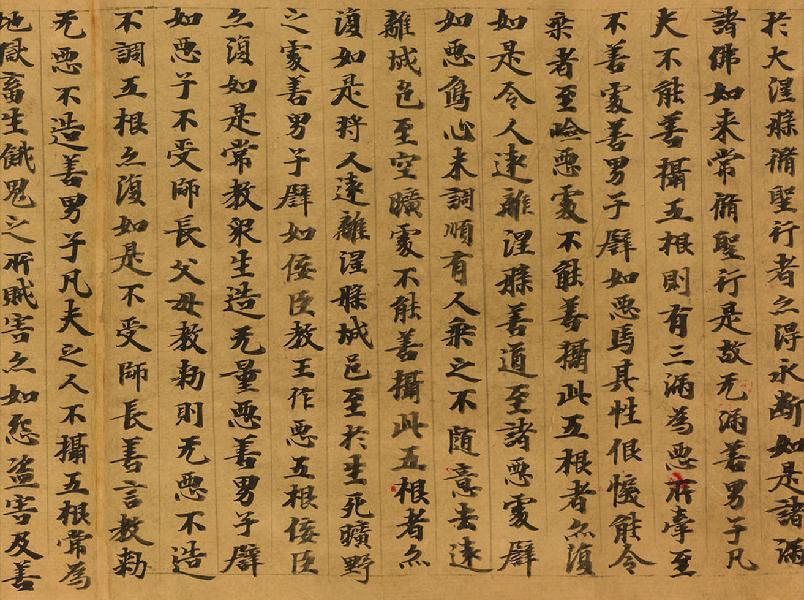 於大涅槃脩聖行者亦得永断如是諸漏
諸佛如来常脩聖行是故无漏善男子凡
夫不能善攝五根則有三漏為悪所牽至
不善處善男子譬如悪馬其性佷悷能令
乗者至嶮悪處不能善攝此五根者亦復
如是令人遠離涅槃善道至諸悪處譬
如悪鳥心未調順有人乗之不随意去遠
離城邑至空曠處不能善攝此五根者亦
復如是将人遠離涅槃城邑至於生死曠野
之處善男子譬如佞臣教王作悪五根佞臣
亦復如是常教衆生造无量悪善男子譬
如悪子不受師長父母教勑則无悪不造
不調五根亦復如是不受師長善言教勑
无悪不造善男子凡夫之人不攝五根常為
地獄畜生餓鬼之所賊害亦如怨盗害及善